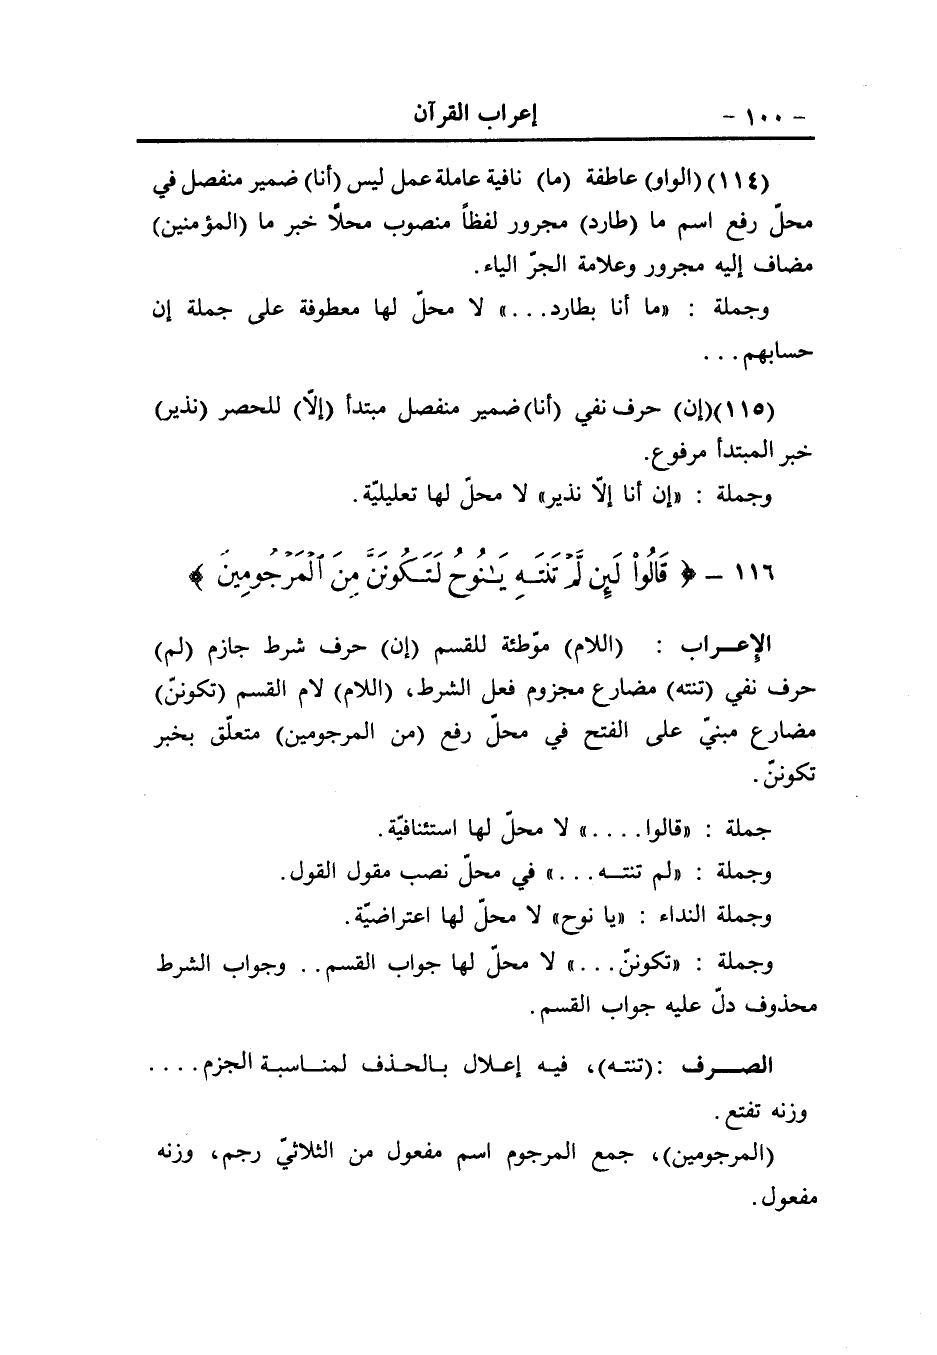 - ١٠٠ - إعراب القرآن
(١١٤) (الواو) عاطفة (ما) نافية عاملة عمل ليس (أنا) ضمير منفصل في
محلّ رفع اسم ما (طارد) مجرور لفظاً منصوب محلاً خبر ما (المؤمنين)
مضاف إليه مجرور وعلامة الجرّ الياء.
وجملة : «ما أنا بطارد...» لا محلّ لها معطوفة على جملة إن
حسابهم...
(١١٥) (إن) حرف نفي (أنا) ضمير منفصل مبتدأ (إلّا) للحصر (نذير)
خبر المبتدأ مرفوع.
وجملة : «إن أنا إلّا نذير» لا محلّ لها تعليليّة.
١١٦ - ﴿ قَالُواْ لَئِن لَّمۡ تَنتَهِ يَٰنُوحُ لَتَكُونَنَّ مِنَ ٱلۡمَرۡجُومِينَ ﴾
الإعـراب : (اللام) موّطئة للقسم (إن) حرف شرط جازم (لم)
حرف نفي (تنته) مضارع مجزوم فعل الشرط، (اللام) لام القسم (تكوننّ)
مضارع مبنيّ على الفتح في محلّ رفع (من المرجومين) متعلّق بخبر
تكوننّ.
جملة : «قالوا....» لا محلّ لها استئنافيّة.
وجملة : «لم تنتـه...» في محلّ نصب مقول القول.
وجملة النداء : «يا نوح» لا محلّ لها اعتراضيّة.
وجملة : «تكوننّ...» لا محلّ لها جواب القسم.. وجواب الشرط
محذوف دلّ عليه جواب القسم.
الصـرف : (تنتـه)، فيـه إعـلال بـالحـذف لمنـاسبـة الجزم....
وزنه تفتع.
(المرجومين)، جمع المرجوم اسم مفعول من الثلاثيّ رجم، وزنه
مفعول.